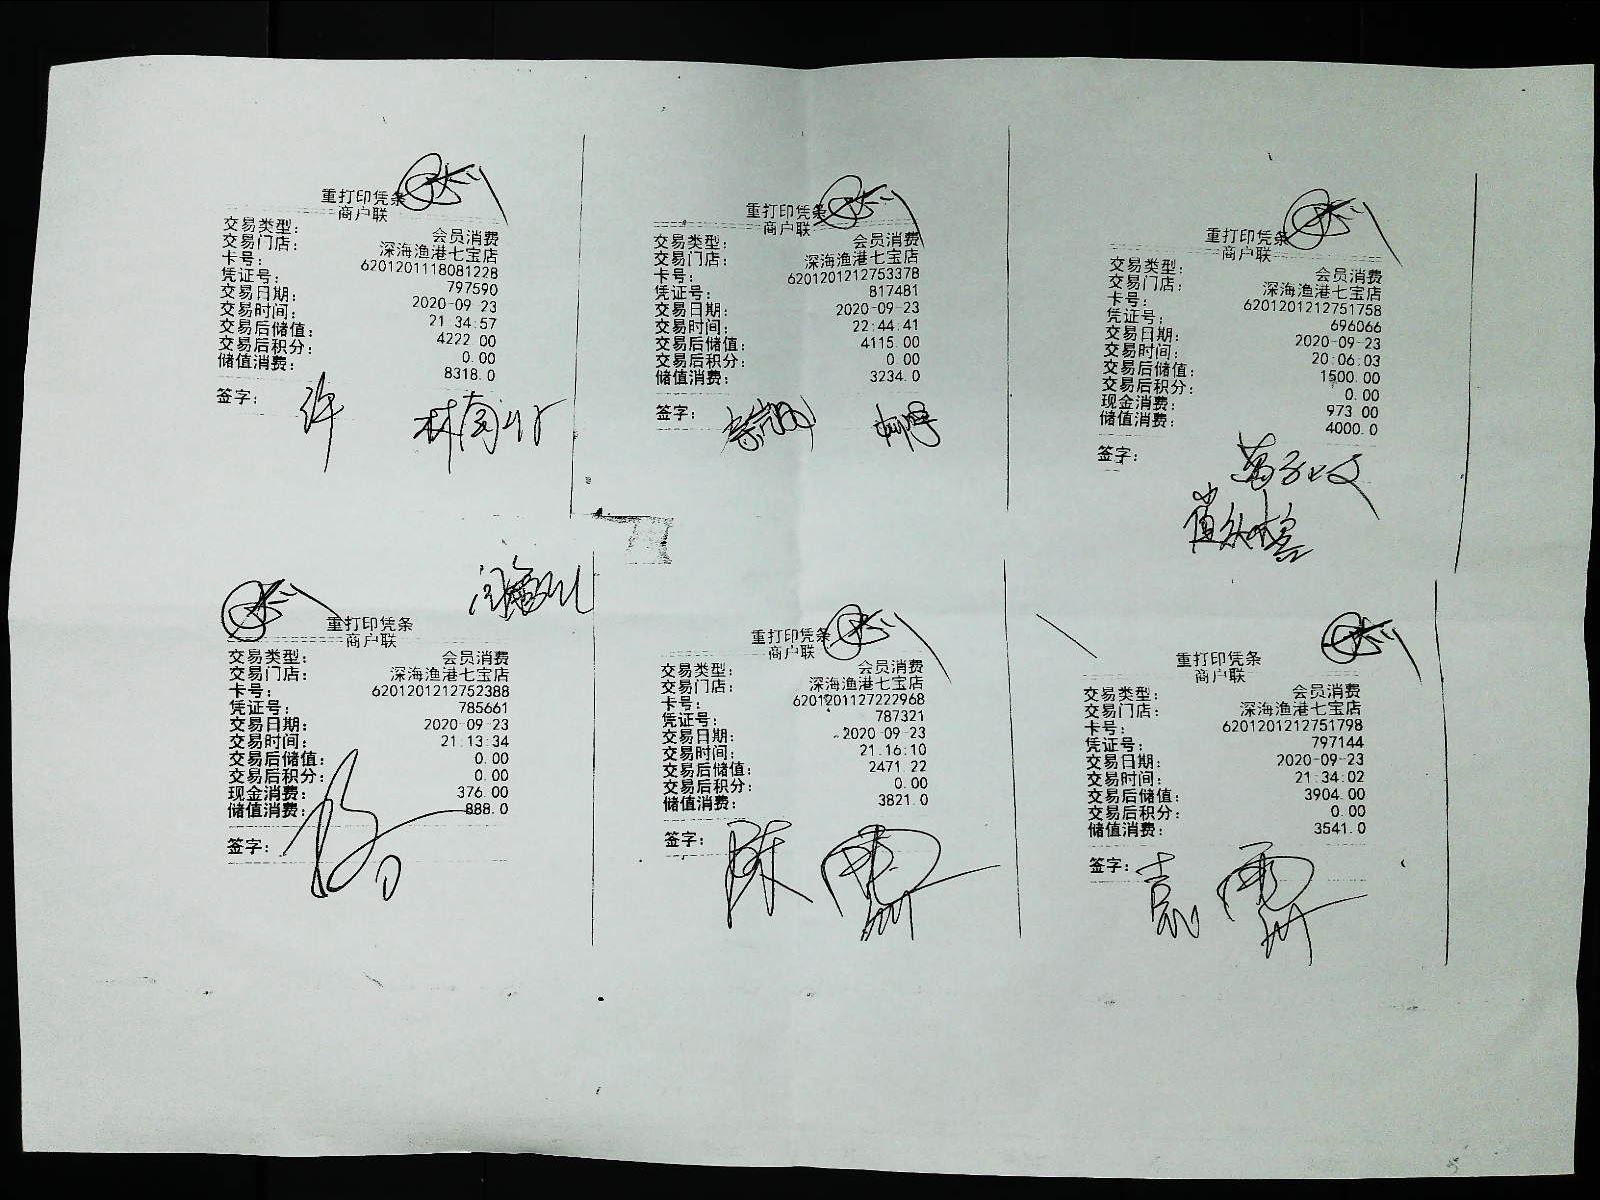 重打印凭条
商户联
交易类型： 会员消费
交易门店： 深海渔港七宝店
卡号： 6201201118081228
凭证号： 797590
交易日期： 2020-09-23
交易时间： 21:34:57
交易后储值： 4222.00
交易后积分： 0.00
储值消费： 8318.0
签字： 许
重打印凭条
商户联
交易类型： 会员消费
交易门店： 深海渔港七宝店
卡号： 6201201212753378
凭证号： 817481
交易日期： 2020-09-23
交易时间： 22:44:41
交易后储值： 4115.00
交易后积分： 0.00
储值消费： 3234.0
签字：
重打印凭条
商户联
交易类型： 会员消费
交易门店： 深海渔港七宝店
卡号： 6201201212751758
凭证号： 696066
交易日期： 2020-09-23
交易时间： 20:06:03
交易后储值： 1500.00
交易后积分： 0.00
现金消费： 973.00
储值消费： 4000.0
签字：
重打印凭条
商户联
交易类型： 会员消费
交易门店： 深海渔港七宝店
卡号： 6201201212752388
凭证号： 785661
交易日期： 2020-09-23
交易时间： 21:13:34
交易后储值： 0.00
交易后积分： 0.00
现金消费： 376.00
储值消费： 888.0
签字：
重打印凭条
商户联
交易类型： 会员消费
交易门店： 深海渔港七宝店
卡号： 6201201127222968
凭证号： 787321
交易日期： 2020-09-23
交易时间： 21:16:10
交易后储值： 2471.22
交易后积分： 0.00
储值消费： 3821.0
签字： 陈
重打印凭条
商户联
交易类型： 会员消费
交易门店： 深海渔港七宝店
卡号： 6201201212751798
凭证号： 797144
交易日期： 2020-09-23
交易时间： 21:34:02
交易后储值： 3904.00
交易后积分： 0.00
储值消费： 3541.0
签字： 袁